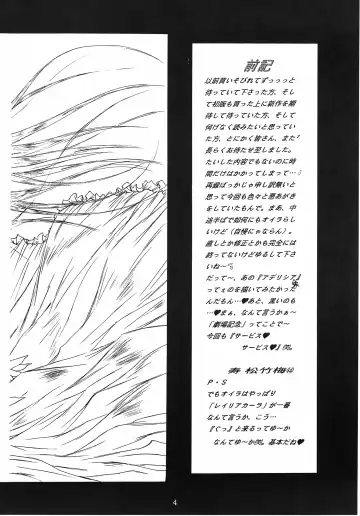 前記
以前買いそびれてずっっっと
待っていて下さった方、そし
て初版も買った上に新作を期
待して待っていた方、そして
何げなく読みたいと思ってい
た方、とにかく皆さん、また？
長らくお待たせ至しました。
たいした内容でもないのに時
間だけはかかってしまって…♪
再録ばっかじゃ申し訳無いと
思って今回も色々と悪あがき
をしていたもんで。まあ、中
途半ぱで如何にもオイラらし
いけど（自慢にゃならん）。
直しとか修正とかも完全には
終ってないけどゆるして下さ
いね〜
だって〜、あの『アデリシア』
ってぇのを描いてみたかった
んだもん…♥あと、黒いのも
…♥まぁ、なんて言うかぁ〜
「劇場記念」ってことで〜
今回も『サービス♥
サービス♥』
寿 松竹梅
P・S
でもオイラはやっぱり
「レイリアカーラ」が一番
なんて言うか、こう…
『ぐっ』と来るってゆ〜か
なんてゆ〜か 基本だね♥
4